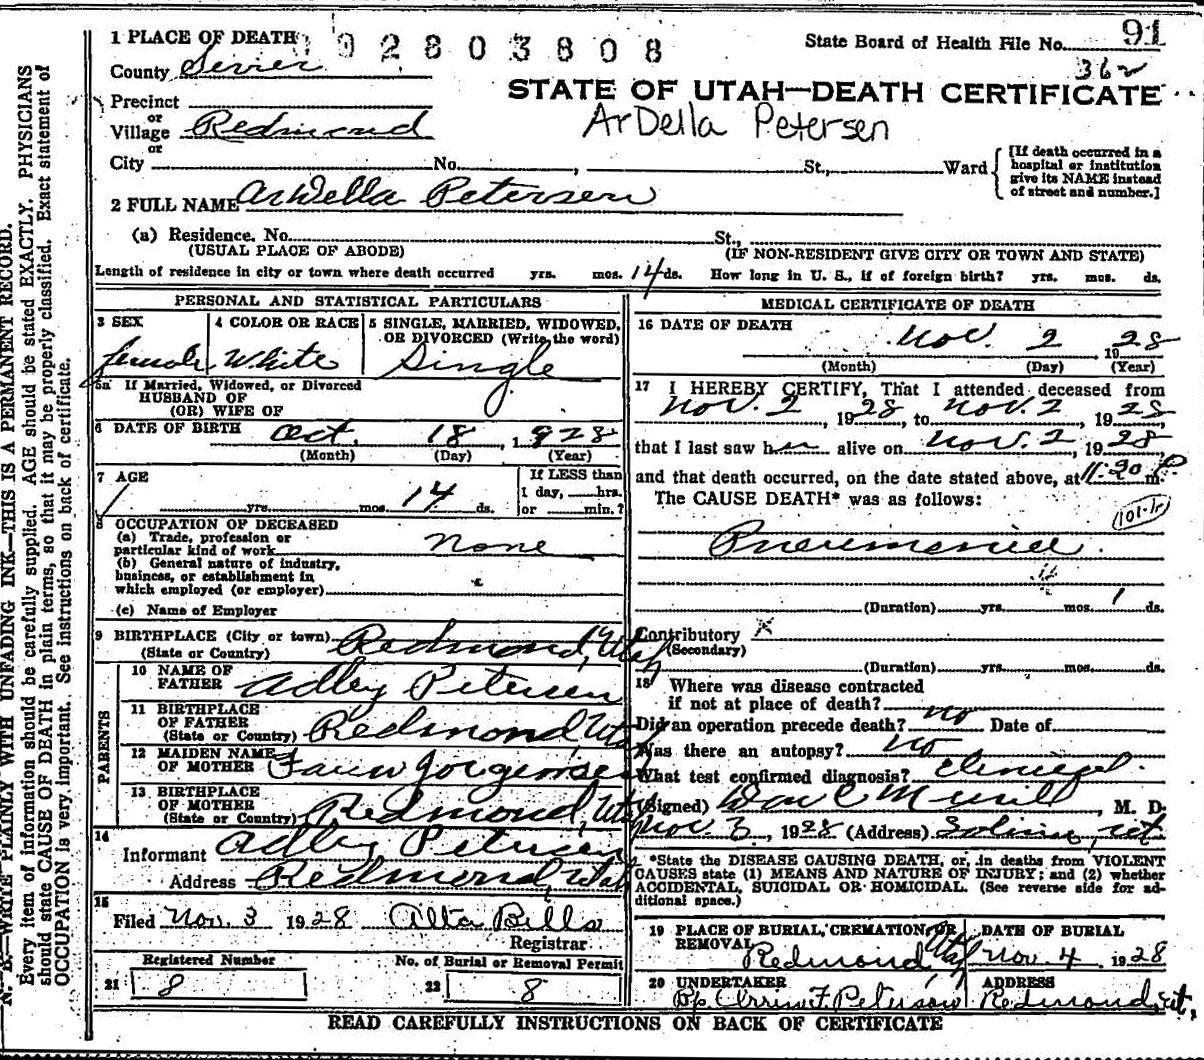 1 PLACE OF DEATH
92803808
State Board of Health File No. 91
County Sevier
362
STATE OF UTAH—DEATH CERTIFICATE
Precinct
or
Village Redmond
ArDella Petersen
or
City No. , St., Ward
[If death occurred in a
hospital or institution
give its NAME instead
of street and number.]
2 FULL NAME ArDella Petersen
(a) Residence. No. St.,
(USUAL PLACE OF ABODE) (IF NON-RESIDENT GIVE CITY OR TOWN AND STATE)
Length of residence in city or town where death occurred yrs. mos. 14 ds. How long in U. S., if of foreign birth? yrs. mos. ds.
PERSONAL AND STATISTICAL PARTICULARS
3 SEX
female
4 COLOR OR RACE
White
5 SINGLE, MARRIED, WIDOWED,
OR DIVORCED (Write the word)
Single
5a If Married, Widowed, or Divorced
HUSBAND OF
(OR) WIFE OF
6 DATE OF BIRTH Oct. 18 1928
(Month) (Day) (Year)
7 AGE
yrs. mos. 14 ds.
If LESS than
1 day, hrs.
or min.?
8 OCCUPATION OF DECEASED
(a) Trade, profession or
particular kind of work none
(b) General nature of industry,
business, or establishment in
which employed (or employer)
(c) Name of Employer
9 BIRTHPLACE (City or town) Redmond, Utah
(State or Country)
PARENTS
10 NAME OF
FATHER Adley Petersen
11 BIRTHPLACE
OF FATHER
(State or Country) Redmond, Utah
12 MAIDEN NAME
OF MOTHER Jorgensen
13 BIRTHPLACE
OF MOTHER
(State or Country) Redmond, Utah
14
Informant Adley Petersen
Address Redmond, Utah
15
Filed Nov. 3 1928 Alta Bills
Registrar
Registered Number
21 8
No. of Burial or Removal Permit
22 8
MEDICAL CERTIFICATE OF DEATH
16 DATE OF DEATH
Nov. 2 1928
(Month) (Day) (Year)
17 I HEREBY CERTIFY, That I attended deceased from
Nov. 2, 1928, to Nov. 2, 1928
that I last saw her alive on Nov. 2, 1928
and that death occurred, on the date stated above, at P m.
The CAUSE DEATH* was as follows:
Pneumonia.
(Duration) yrs. mos. 1 ds.
Contributory
(Secondary)
(Duration) yrs. mos. ds.
18 Where was disease contracted
if not at place of death?
Did an operation precede death? no Date of
Was there an autopsy? no
What test confirmed diagnosis? clinical
(Signed) Merrill, M. D.
Nov 3, 1928 (Address) Salina, Ut
*State the DISEASE CAUSING DEATH, or, in deaths from VIOLENT
CAUSES state (1) MEANS AND NATURE OF INJURY; and (2) whether
ACCIDENTAL, SUICIDAL OR HOMICIDAL. (See reverse side for ad-
ditional space.)
19 PLACE OF BURIAL, CREMATION OR
REMOVAL
Redmond Utah
DATE OF BURIAL
Nov. 4 1928
20 UNDERTAKER
Bp. Orrin F. Peterson
ADDRESS
Redmond, Ut.
READ CAREFULLY INSTRUCTIONS ON BACK OF CERTIFICATE
N. B.—WRITE PLAINLY WITH UNFADING INK—THIS IS A PERMANENT RECORD.
Every item of information should be carefully supplied. AGE should be stated EXACTLY. PHYSICIANS
should state CAUSE OF DEATH in plain terms, so that it may be properly classified. Exact statement of
OCCUPATION is very important. See instructions on back of certificate.